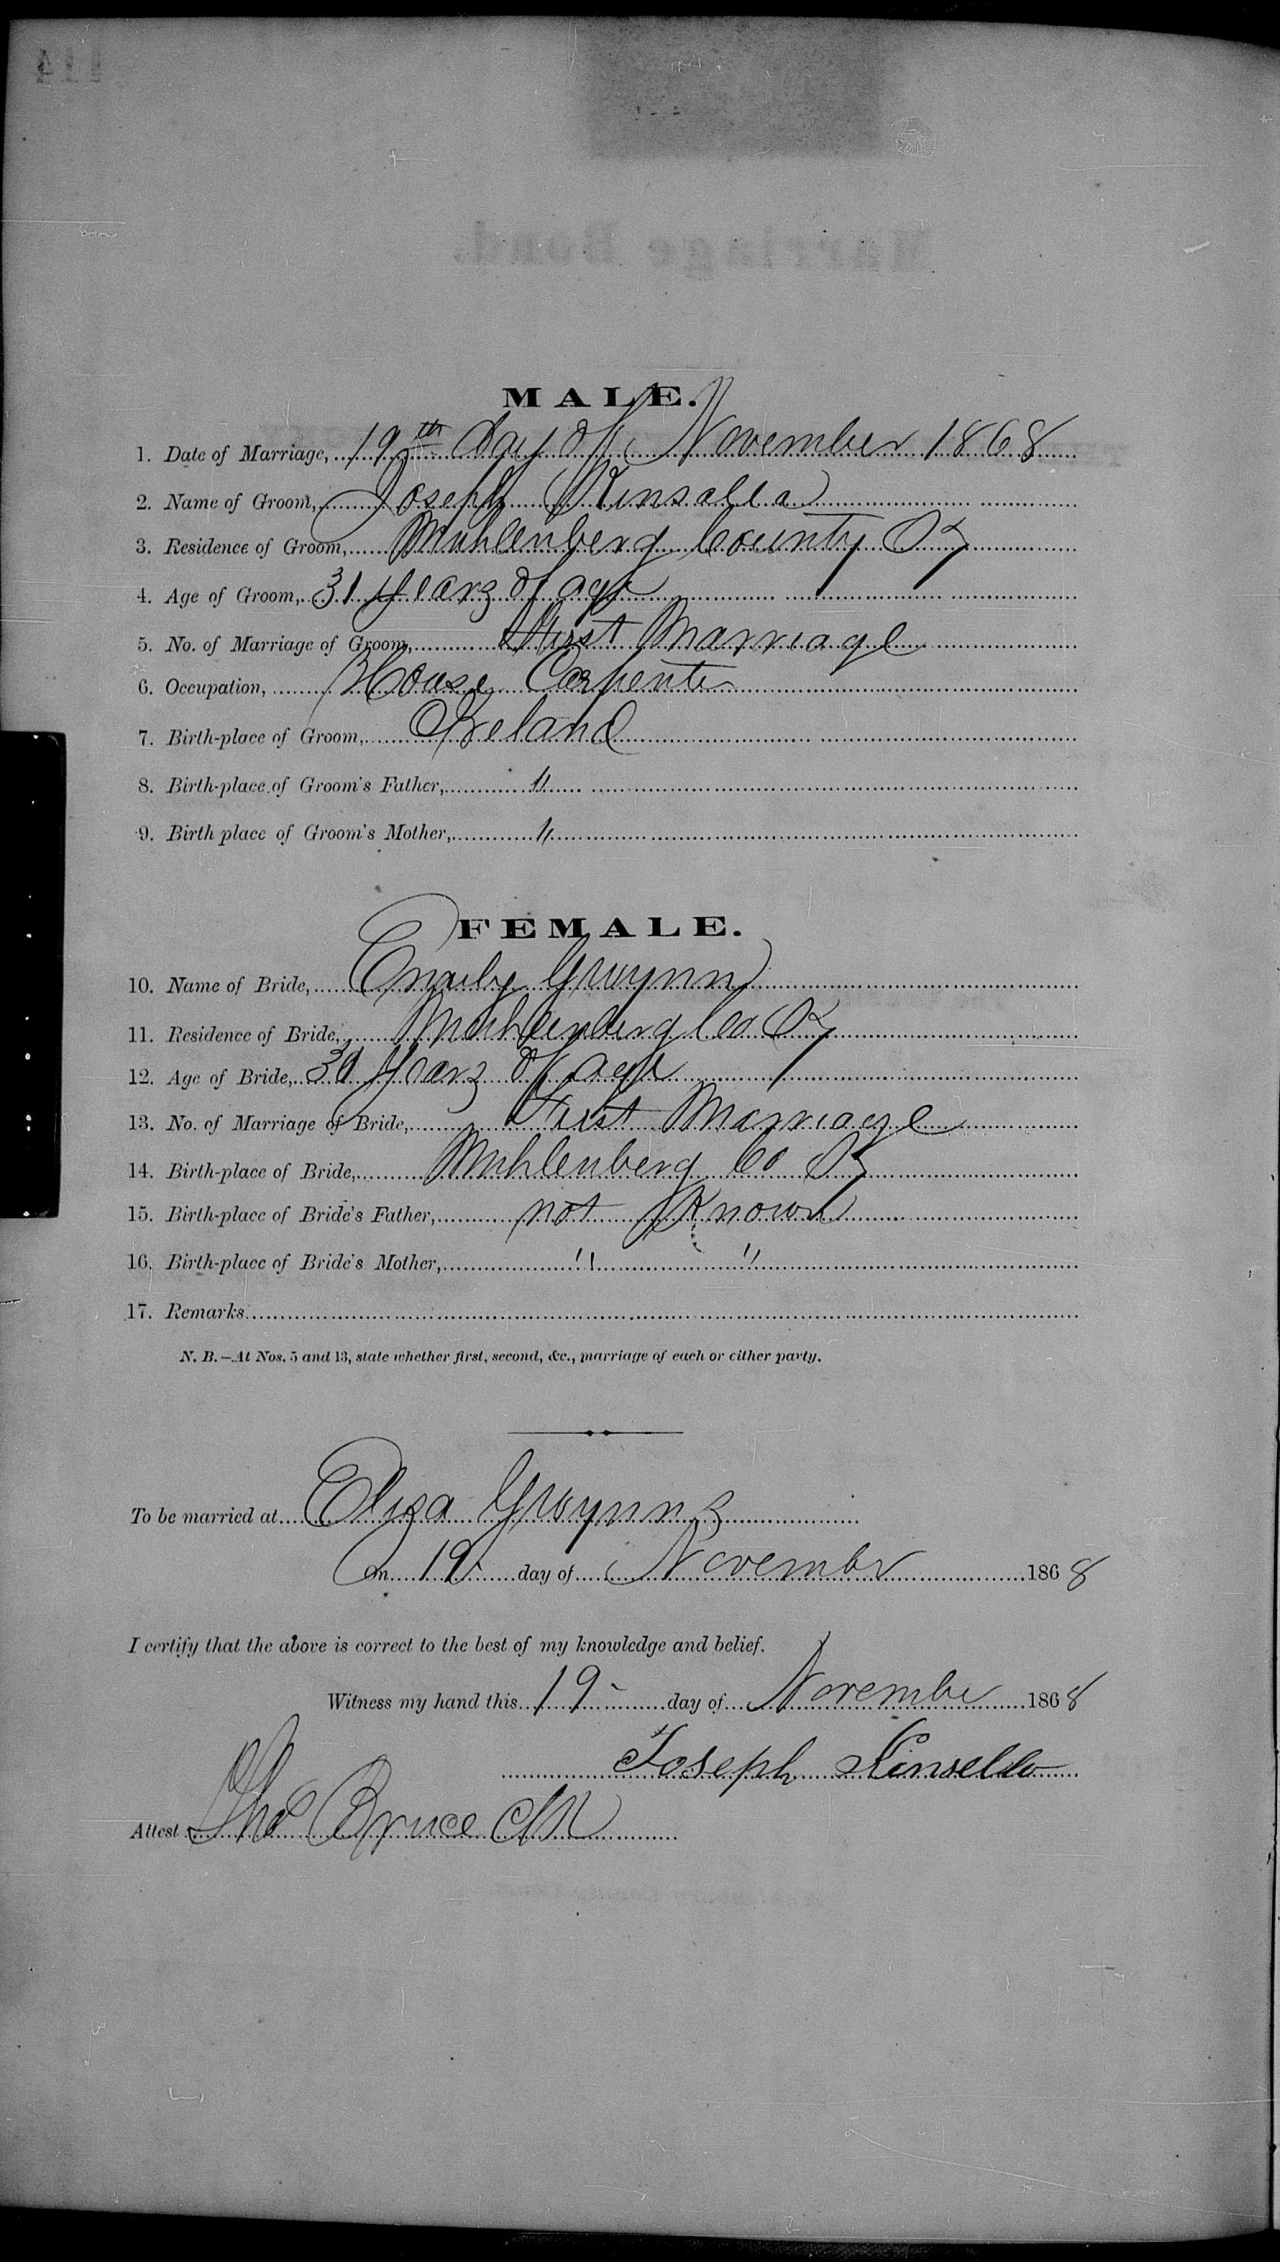 114
Marriage Bond.
MALE.
1. Date of Marriage, 19th day of November 1868
2. Name of Groom, Joseph Kinsalla
3. Residence of Groom, Muhlenberg County Ky
4. Age of Groom, 31 years of age
5. No. of Marriage of Groom, First Marriage
6. Occupation, House Carpenter
7. Birth-place of Groom, Ireland
8. Birth-place of Groom's Father, "
9. Birth place of Groom's Mother, "
FEMALE.
10. Name of Bride, Emily Gwynn
11. Residence of Bride, Muhlenberg Co Ky
12. Age of Bride, years of age
13. No. of Marriage of Bride, First Marriage
14. Birth-place of Bride, Muhlenberg Co Ky
15. Birth-place of Bride's Father, not Known
16. Birth-place of Bride's Mother, " "
17. Remarks
N. B.—At Nos. 5 and 13, state whether first, second, &c., marriage of each or either party.
To be married at Eliza Gwynns
On 19 day of November 1868
I certify that the above is correct to the best of my knowledge and belief.
Witness my hand this 19 day of November 1868
Joseph Kinsella
Attest Thos Bruce Clk